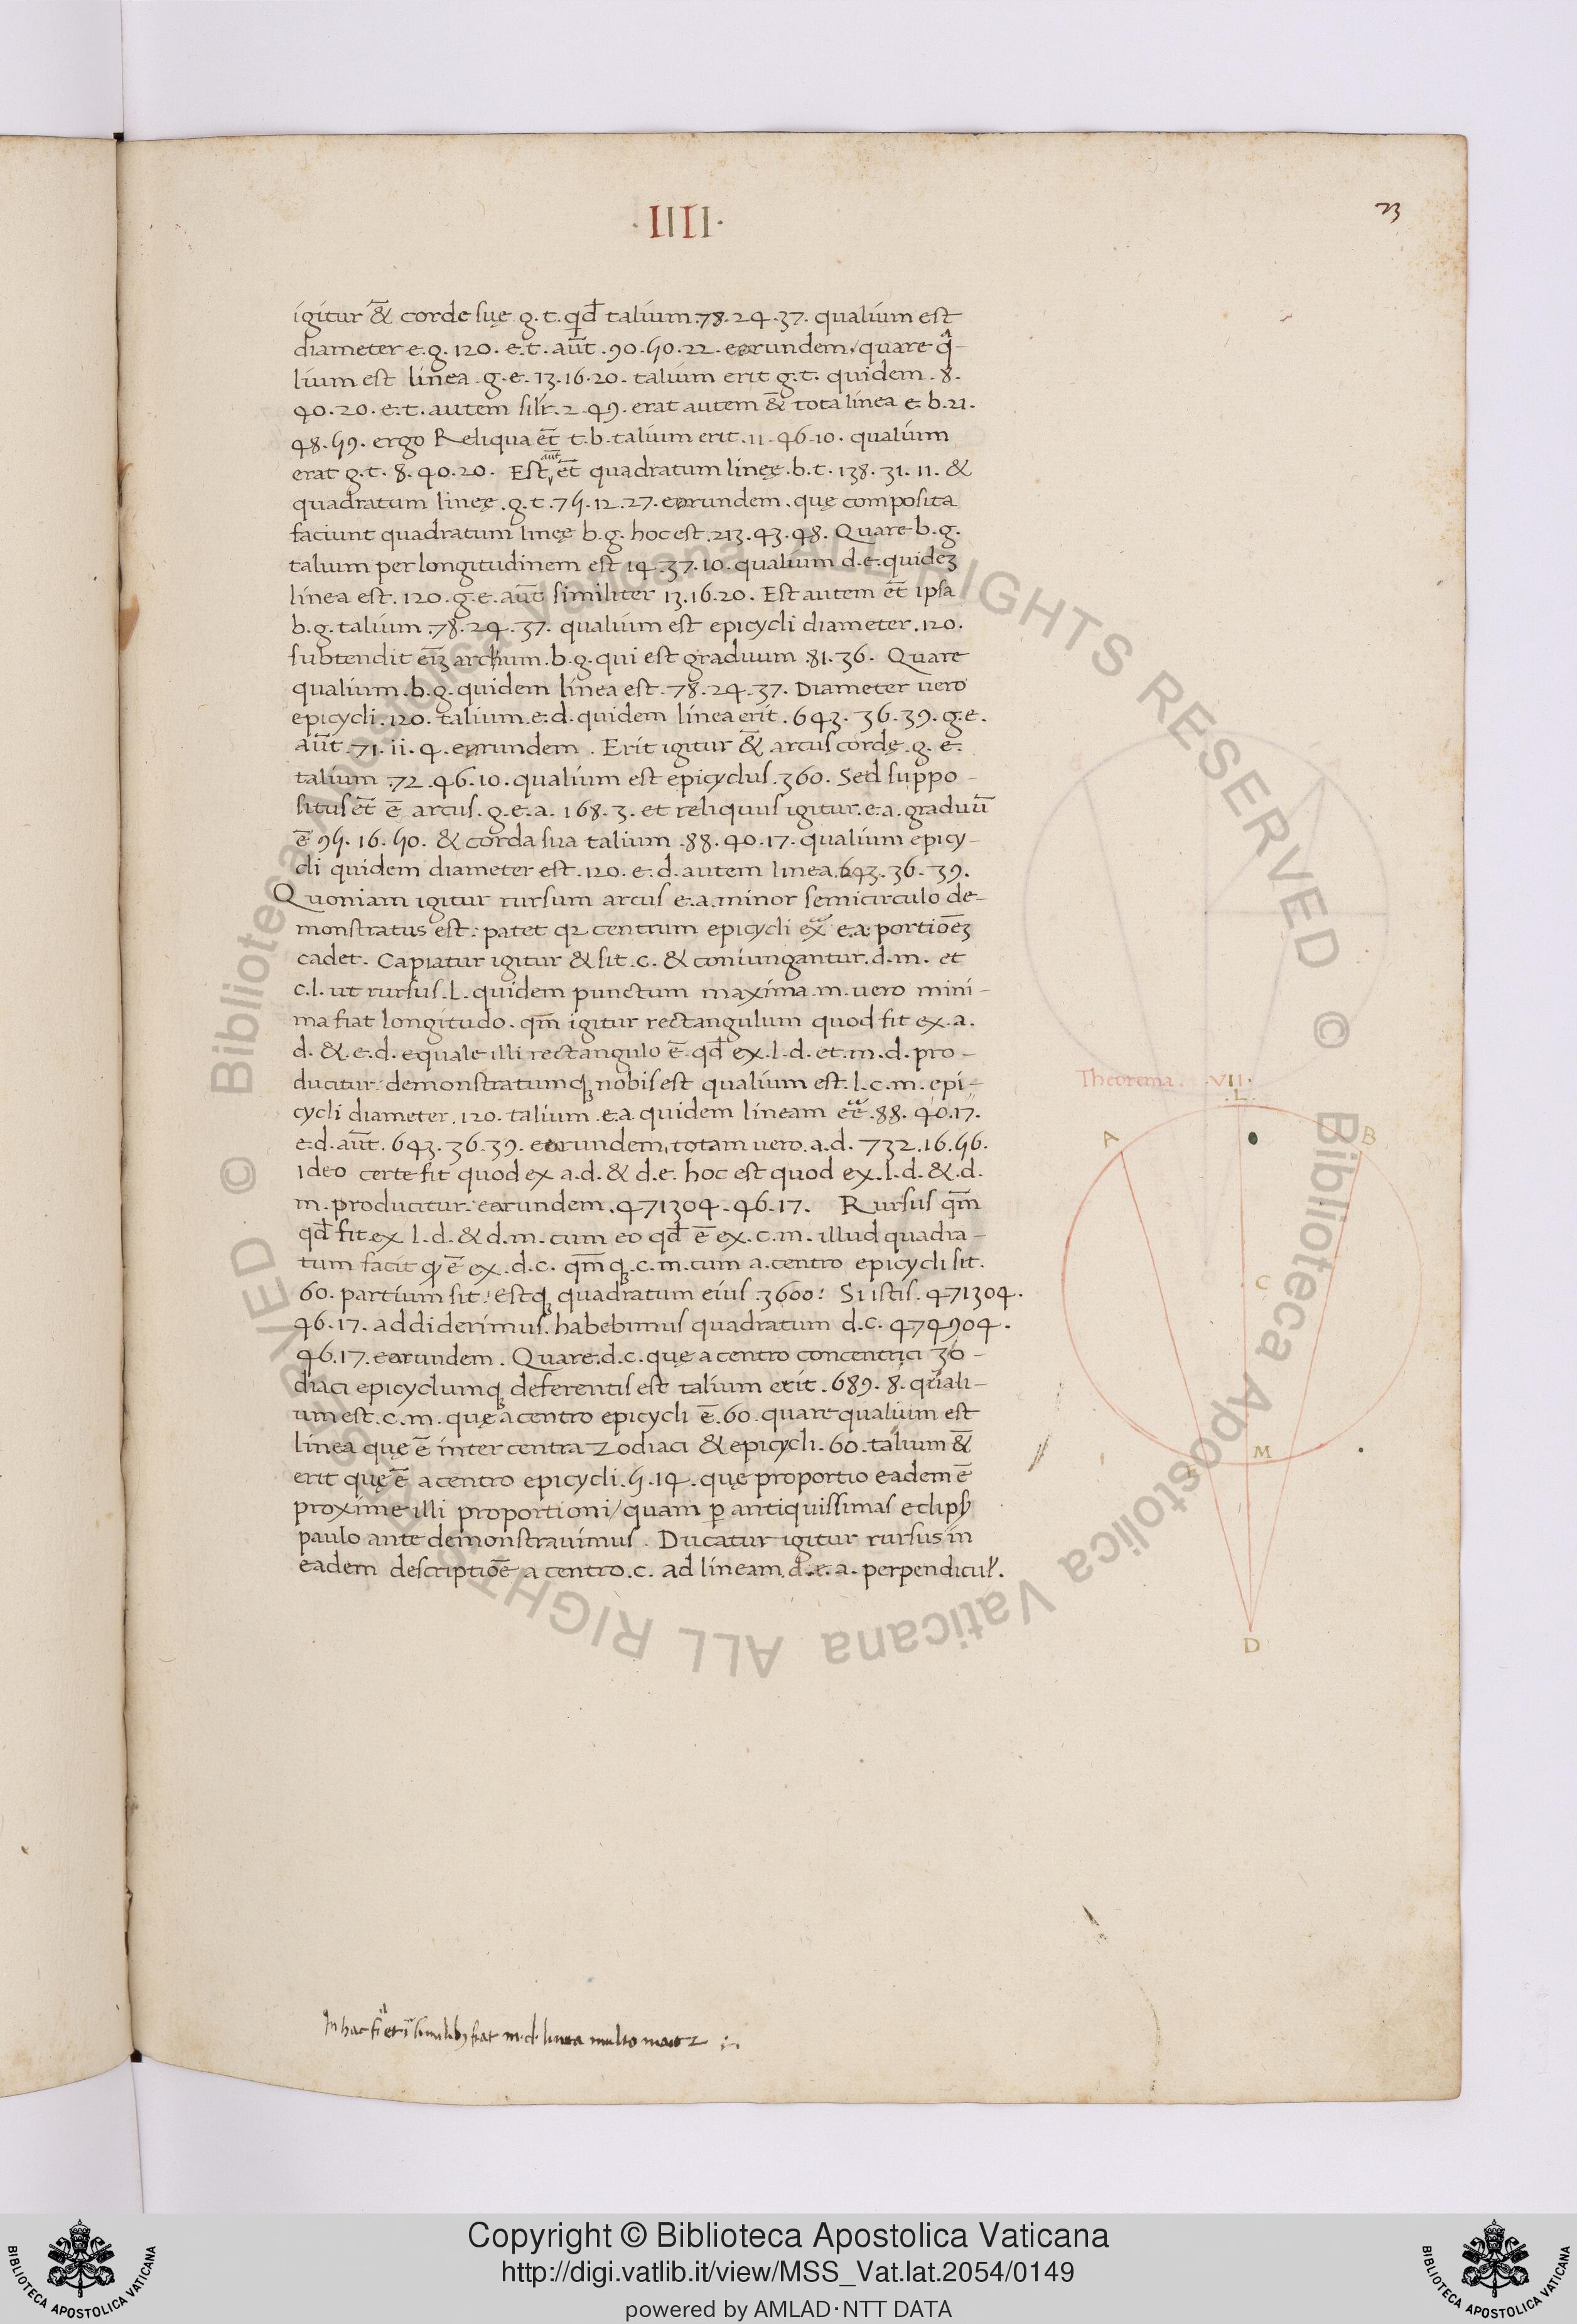 ·IIII·
73
igitur &̄ corde suę g.t. qd̄ talium .78.24.37. qualium est
diameter e.g. 120. e.t. aūt .90.50.22. eorundem, quare q̄a-
lium est linea .g.e. 13.16.20. talium erit g.t. quidem .8.
40.20. e.t. autem silr̄.2.49. erat autem &̄ tota linea e.b.21.
48.59. ergo Reliqua et̄ t.b. talium erit .11.46.10. qualium
erat g.t. 8.40.20. Est aūt et̄ quadratum lineę .b.t. 138.31.11. &
quadratum lineę .g.t. 75.12.27. eorundem. quę composita
faciunt quadratum lineę b.g. hoc est .213.43.48. Quare b.g.
talium per longitudinem est 14.37.10. qualium d.e. quidez
linea est. 120. g.e. aūt similiter 13.16.20. Est autem et̄ ipsa
b.g. talium .78.24.37. qualium est epicycli diameter .120.
subtendit eīz archum .b.g. qui est graduum .81.36. Quare
qualium .b.g. quidem linea est .78.24.37. Diameter uero
epicycli .120. talium .e.d. quidem linea erit .643.36.39. g.e.
aūt .71.11.4. eorundem. Erit igitur &̄ arcus cordę .g.e.
talium .72.46.10. qualium est epicyclus .360. Sed suppo-
situs et̄ ē arcus .g.e.a. 168.3. et reliquus igitur .e.a. graduū
ē 95.16.50. & corda sua talium .88.40.17. qualium epicy-
cli quidem diameter est .120. e.d. autem linea .643.36.39.
Quoniam igitur rursum arcus e.a. minor semicirculo de-
monstratus est: patet qz centrum epicycli ex̄a e.a. portiōez
cadet. Capiatur igitur & sit .c. & coniungantur .d.m. et
c.l. ut rursus .L. quidem punctum maxima .m. uero mini-
ma fiat longitudo. qm̄ igitur rectangulum quod fit ex .a.
d. & .e.d. equale illi rectangulo ē qd̄ ex .l.d. et .m.d. pro-
ducitur: demonstratumqz nobis est qualium est .l.c.m. epi-
cycli diameter .120. talium .e.a. quidem lineam eē .88.40.17.
e.d. aūt .643.36.39. eorundem, totam uero .a.d. 732.16.56.
Ideo certe fit quod ex a.d. & d.e. hoc est quod ex .l.d. & .d.
m. producitur: eorundem .471304.46.17. Rursus qm̄
qd̄ fit ex l.d. & d.m. cum eo qd̄ ē ex .c.m. illud quadra-
tum facit qd̄ ē ex .d.c. qm̄qz .c.m. cum a centro epicycli sit.
60. partium sit: estqz quadratum eius .3600: Si istis .471304.
46.17. addiderimus. habebimus quadratum d.c. 474904.
46.17. eorundem. Quare .d.c. quę a centro concentrici zo-
diaci epicyclumqz deferentis est talium erit .689.8. quali-
um est .c.m. quę a centro epicycli ē .60. quare qualium est
linea quę ē inter centra zodiaci & epicycli .60. talium &̄
erit quę ē a centro epicycli .5.14. quę proportio eadem ē
proxime illi proportioni/ quam p antiquissimas eclips
paulo ante demonstrauimus. Ducatur igitur rursus in
eadem descriptiōe a centro .c. ad lineam .d.e.a. perpendicul'.
Theorema .VII.
.L.
A
B
C
E
M
D
In hac fiḡ et ī similibz fiat m.d. linea multo maior
© Biblioteca Apostolica Vaticana ALL RIGHTS RESERVED © Biblioteca Apostolica Vaticana ALL RIGHTS RESERVED
Copyright © Biblioteca Apostolica Vaticana
http://digi.vatlib.it/view/MSS_Vat.lat.2054/0149
powered by AMLAD·NTT DATA
BIBLIOTECA APOSTOLICA VATICANA
BIBLIOTECA APOSTOLICA VATICANA